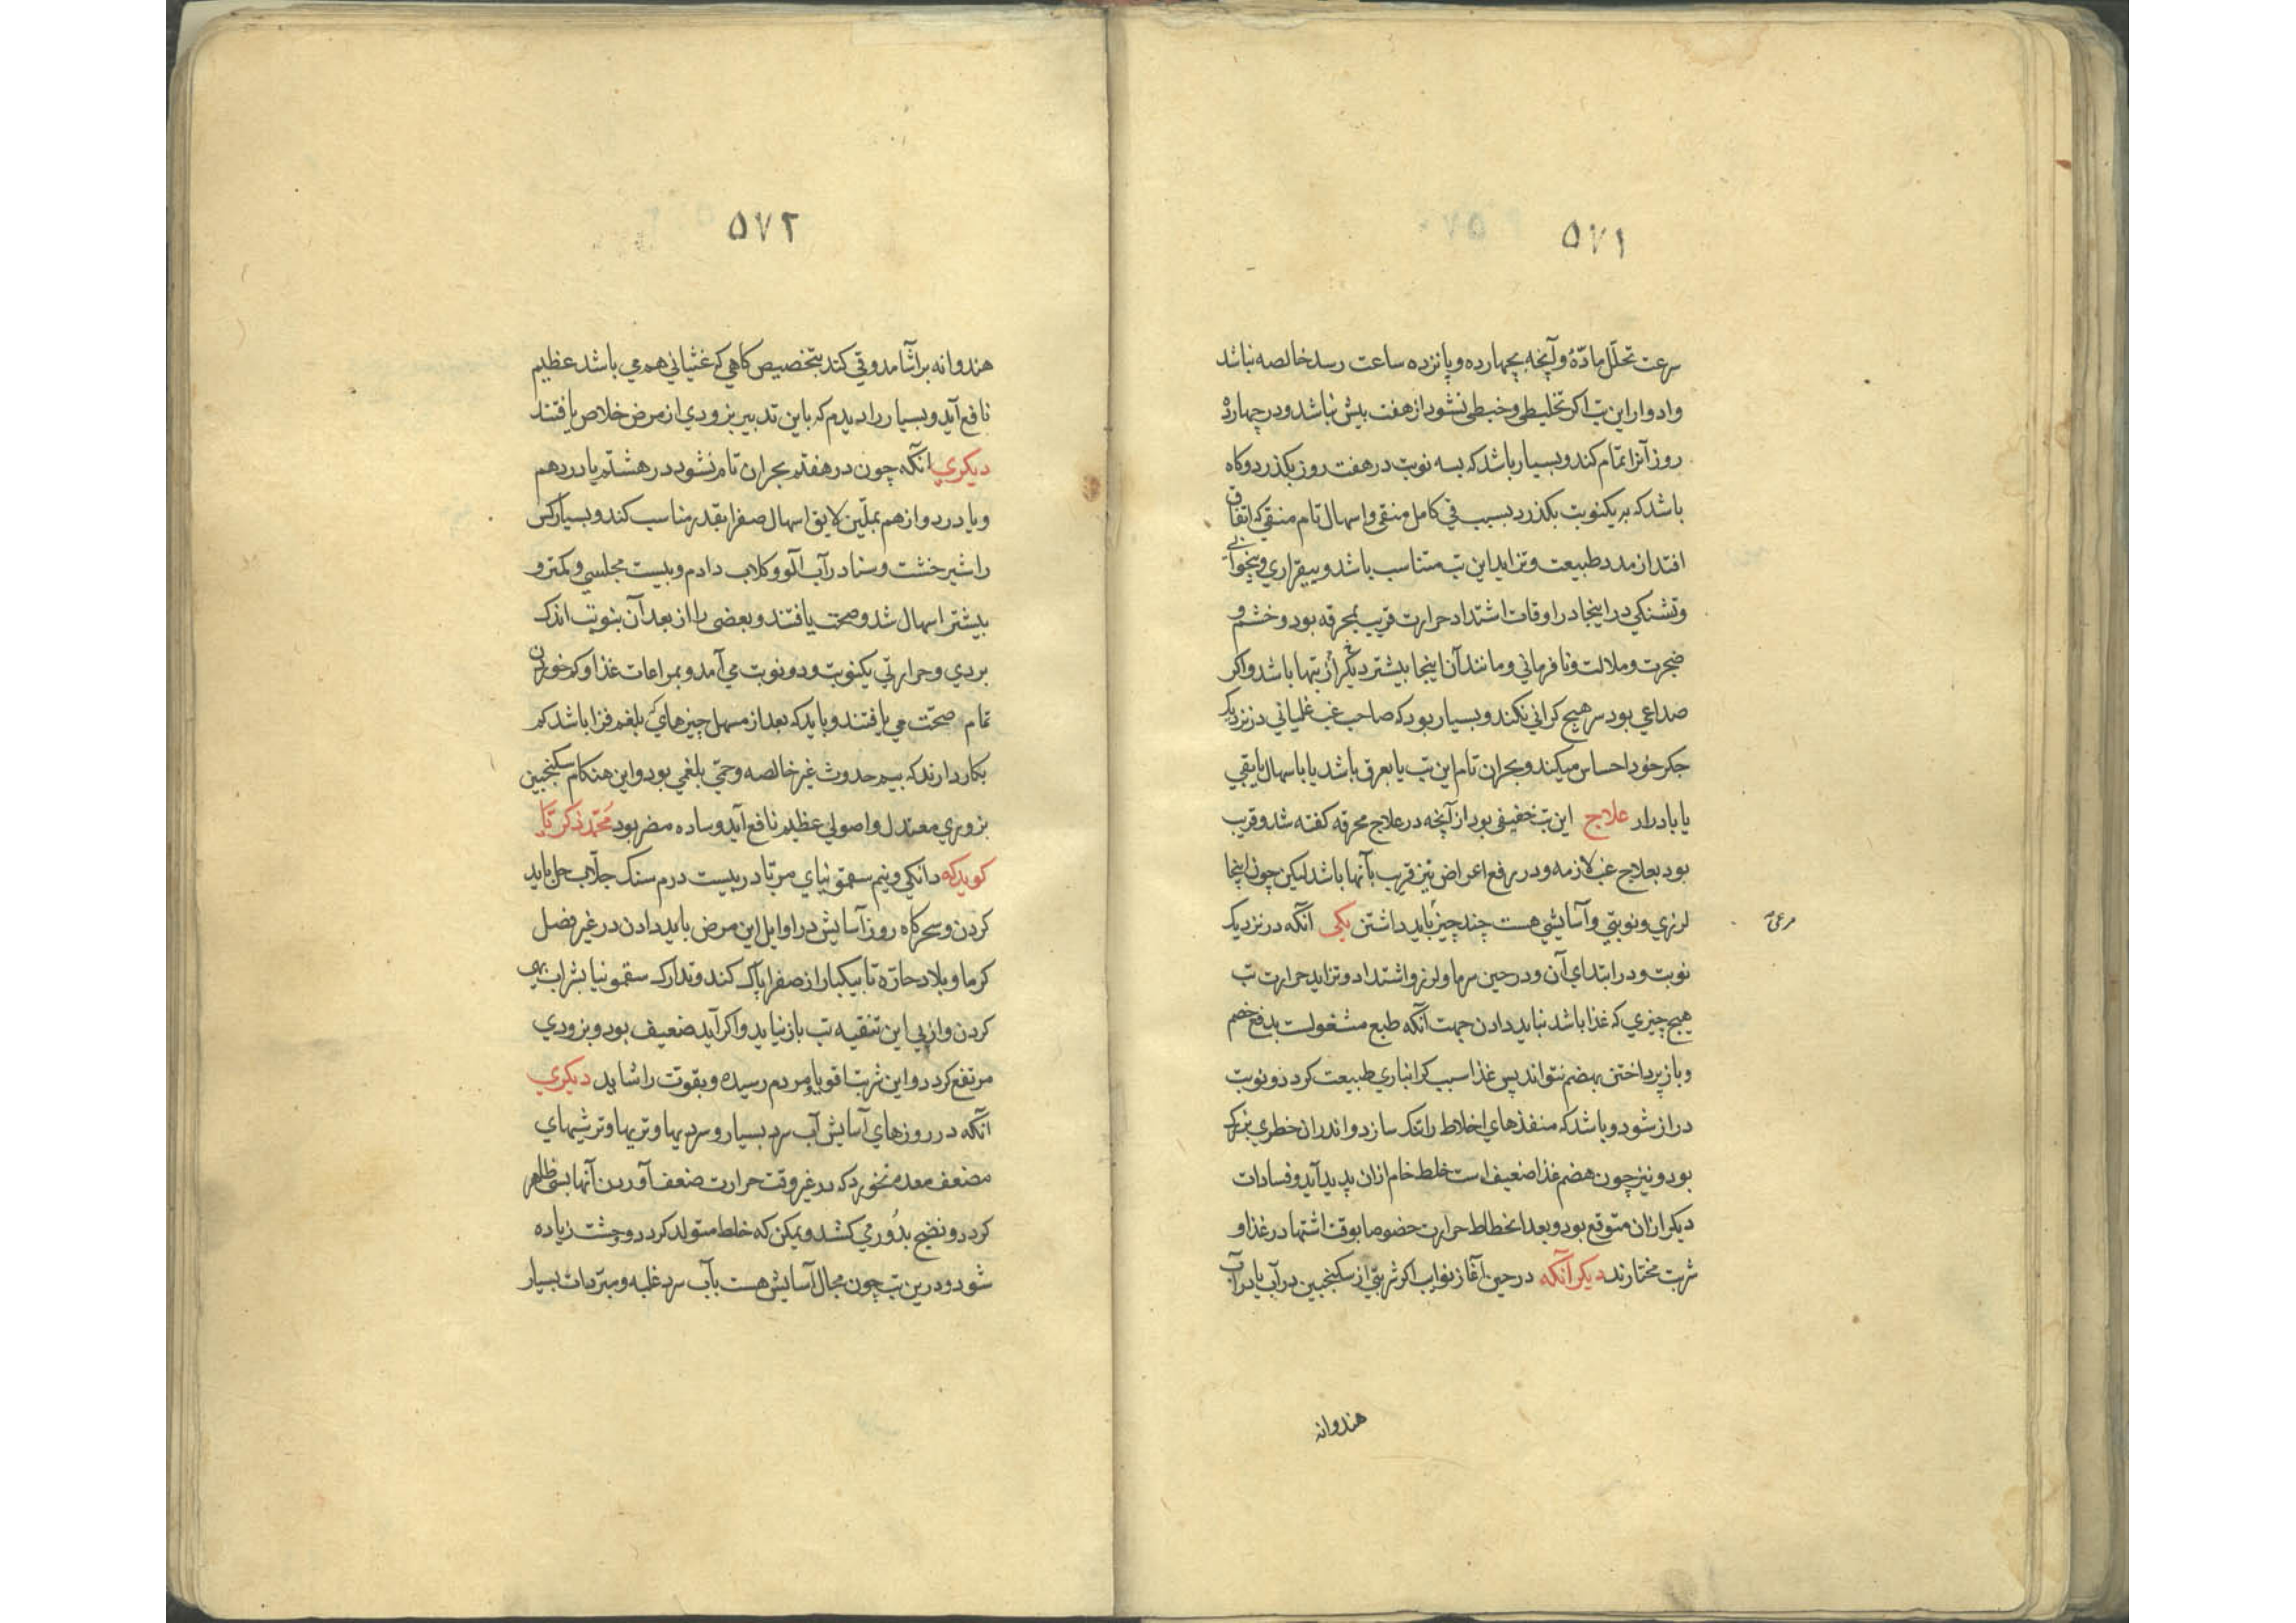 ۵۷۱
سرعت تحلّل مادّهٔ و آنچه بچهارده و پانزده ساعت رسد خالصه نباشد
و ادوار این تب اکر تخلیطی و خبطی نشود از هفت بیش نباشد و در چهارده
روز آنرا تمام کند و بسیار باشد که بسه نوبت در هفت روز بکذرد و کاه
باشد که بر یکنوبت بکذرد بسبب قی کامل منقی و اسهال تام منقی که اتفاق
افتد از مدد طبیعت و تزاید این تب متناسب باشد و بیقراری و بیخوابی
و تشنکی در اینجا در اوقات اشتداد حرارت قریب بمحرقه بود و خشم و
ضجرت و ملالت و نافرمانی و مانند آن اینجا بیشتر دیگر از تبها باشد و اکر
صداعی بود سر هیچ کرانی نکند و بسیار بود که صاحب غب غلیانی در نزدیک
جکر خود احساس میکند و بحران تام این تب یا بعرق باشد یا باسهال یا بقی
یا بادرار علاج این تب خفیفی بود از آنچه در علاج محرقه کفته شد و قریب
بود بعلاج غب لازمه و در رفع اعراض نیز قرب بآنها باشد لیکن چون اینجا
لرزی و نوبتی و آسایشی هست چند چیز باید داشتن یکی آنکه در نزدیک
مرعی
نوبت و در ابتدای آن و در حین سرما و لرز و اشتداد و تزاید حرارت تب
هیچ چیزی که غذا باشد نباید دادن جهت آنکه طبع مشغولست بدفع خصم
و باز پرداختن بهضم نتواند پس غذا سبب کرانباری طبیعت کردد و نوبت
دراز شود و باشد که منفذهای اخلاط را تنک سازد و اندران خطری بزرک
بود و نیز چون هضم غذا ضعیف است خلط خام ازان پدید آید و فسادات
دیکر ازان متوقع بود و بعد انحطاط حرارت خصوصا بوقت اشتها در غذا و
شربت مختارند دیکر آنکه در حین آغاز نوایب اکر شربتی از سکنجبین در آب یا در آب
هندوانه
۵۷۲
هندوانه برآشامد و قی کند بتخصیص کاهی که غثیانی هم می باشد عظیم
نافع آید و بسیار را دیدم که باین تدبیر بزودی از مرض خلاص یافتند
دیکری انکه چون در هفتم بحران تام نشود در هشتم یا در دهم
و یا در دوازهم بملّین لایق اسهال صفرا بقدر مناسب کند و بسیار کس
را شیر خشت و سنا در آب آلو و کلاب دادم و بیست مجلسی و کمتر و
بیشتر اسهال شد و صحت یافتند و بعضی را از بعد آن بنوبت اندک
بردی و حرارتی یکنوبت و دو نوبت می آمد و بمراعات غذا و کم خوردن
تمام صحّت می یافتند و باید که بعد از مسهل چیزهای بلغم فزا باشد کم
بکار دارند که بیم حدوث غیر خالصه و حمی بلغمی بود و این هنکام سکنجبین
بزوری معتدل و اصولی عظیم نافع آید و ساده مضر بود محمّد زکریّا
کوید که دانکی و نیم سقمونیای مربّا در بیست درم سنک جلّاب حل باید
کردن و سحرکاه روز آسایش در اوایل این مرض باید دادن در غیر فصل
کرما و بلاد حارّه تا بیکبار از صفرا پاک کند و تدارک سقمونیا بشراب بهی
کردن و از پی این تنقیه تب باز نیاید و اکر آید ضعیف بود و بزودی
مرتفع کردد و این شربت اقویا و مردم رسیده و بقوت را شاید دیکری
آنکه در روزهای آسایش آب سرد بسیار و سردیها و تریها و ترشیهای
مضعف معده نخورد که در غیر وقت حرارت ضعف آوردن آنها بسی ظاهر
کردد و نضج بدوری کشد و یمکن که خلط متولد کردد و وحشت زیاده
شود و درین تب چون مجال آسایش هست بآب سرد غلبه و مبرّدات بسیار